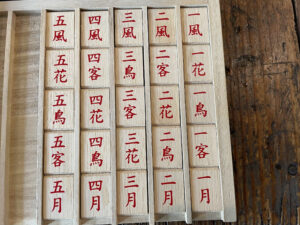 一風
一花
一鳥
一客
一月
二風
二客
二花
二鳥
二月
三風
三鳥
三客
三花
三月
四風
四客
四花
四鳥
四月
五風
五花
五鳥
五客
五月